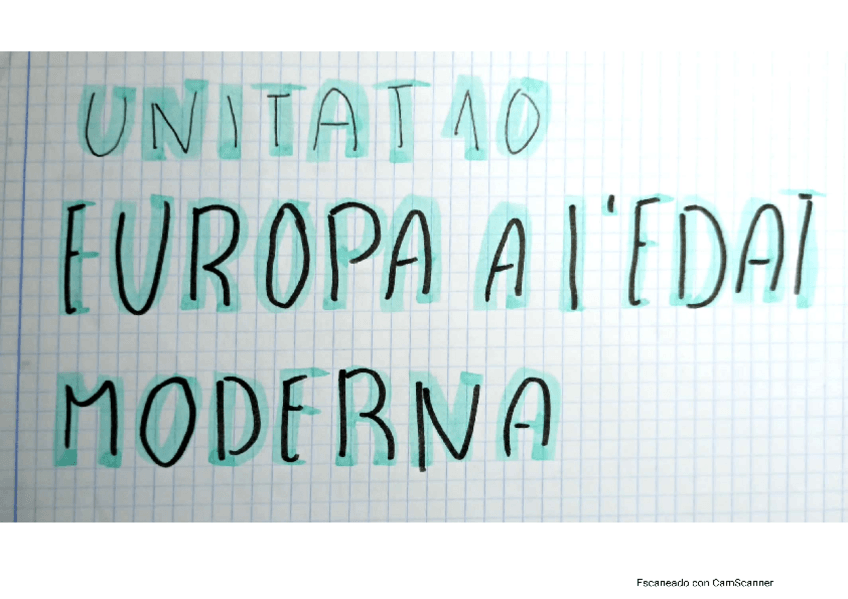 UNITAT 10
EUROPA A l'EDAT
MODERNA
Escaneado con CamScanner